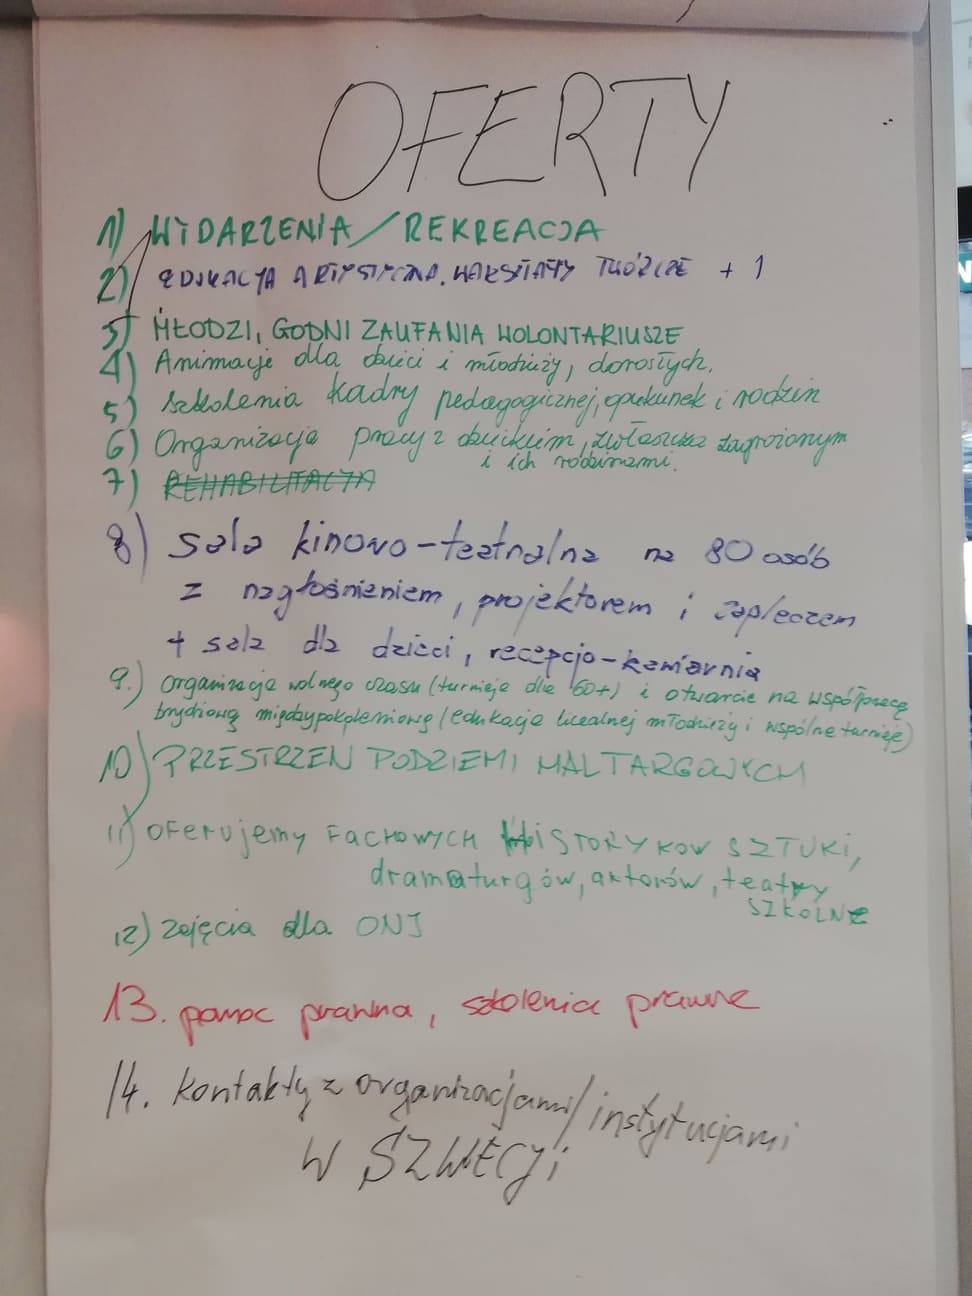 OFERTY
1) WYDARZENIA / REKREACJA
2) EDUKACJA ARTYSTYCZNA. WARSZTATY TWÓRCZE + 1
3) MŁODZI, GODNI ZAUFANIA WOLONTARIUSZE
4) Animacje dla dzieci i młodzieży, dorosłych.
5) szkolenia kadry pedagogicznej, opiekunek i rodzin
6) Organizacja pracy z dzieckiem, zwłaszcza zagrożonym
i ich rodzinami.
7) REHABILITACJA
8) sala kinowo-teatralna na 80 osób
z nagłośnieniem, projektorem i zapleczem
+ sala dla dzieci, recepcjo-kawiarnia
9.) organizacja wolnego czasu (turnieje dla 60+) i otwarcie na współpracę
brydżową międzypokoleniową (edukacja licealnej młodzieży i wspólne turnieje)
10) PRZESTRZEŃ PODZIEMI MALTARGOWYCH
11) OFERUJEMY FACHOWYCH HISTORYKOW SZTUKI,
dramaturgów, aktorów, teatry
SZKOLNE
12) zajęcia dla ONJ
13. pomoc prawna, szkolenia prawne
14. kontakty z organizacjami/instytucjami
W SZWECJi